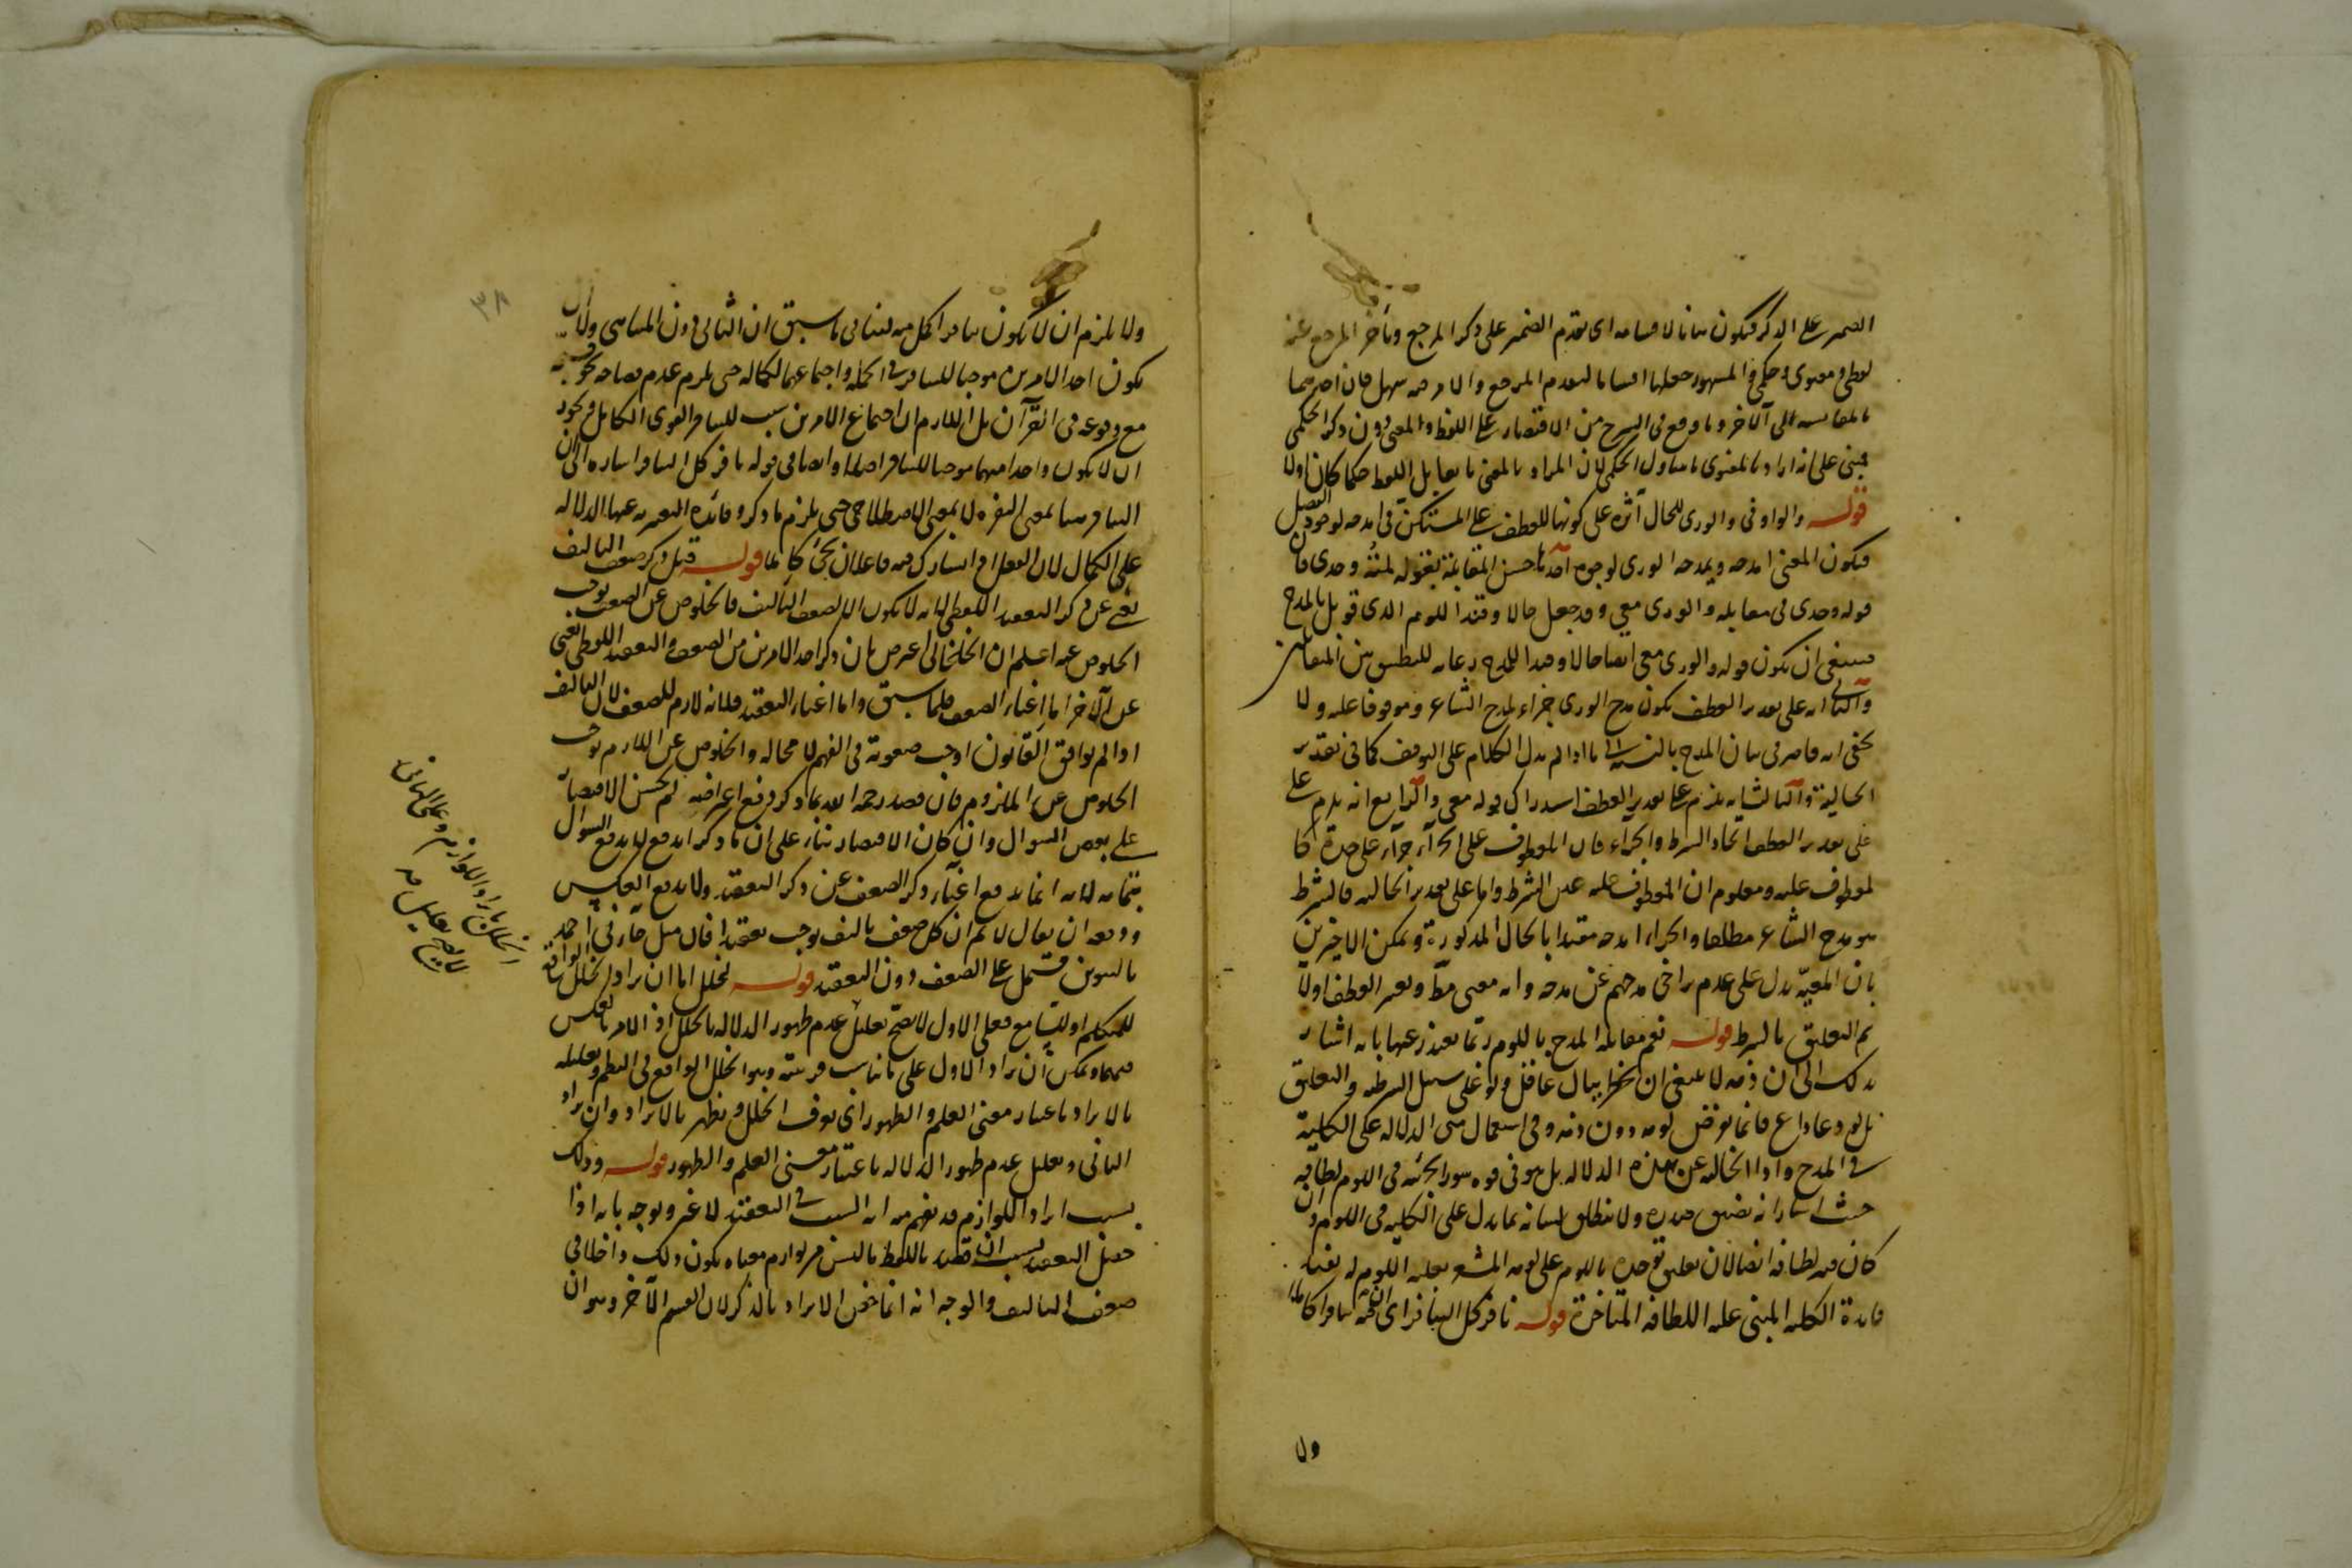 الضمير على الذكر فيكون بيانا لاقسامه اى تقدم الضمير على ذكر المرجع وتأخر المرجع عنه
لفظى ومعنوى وحكمى والمشهور جعلها اقساما لتقدم المرجع والامر فيه سهل فان احدهما
بالمقايسة الى الآخر وما وقع فى الشرح من الاقتصار على اللفظ والمعنى دون ذكر الحكمى
مبنى على انه اراد بالمعنوى ما يتناول الحكمى لان المراد بالمعنى ما يقابل اللفظ حكما كان اولا
قوله والواو فى والورى للحال آثره على كونها للعطف على المستكن فى امدحه لوجود الفصل
فيكون المعنى امدحه ويمدحه الورى لوجوه آحدها حسن المقابلة بقوله لمته وحدى فان
قوله وحدى فى مقابلة والورى معى وقد جعل حالا وقيدا للوم الذى قوبل بالمدح
فينبغى ان يكون قوله والورى معى ايضا حالا وقيدا للمدح رعاية للتطبيق بين المتقابلين
والثانى انه على تقدير العطف يكون مدح الورى جزاء لمدح الشاعر وموقوفا عليه ولا
يخفى انه قاصر فى بيان المدح بالنسبة الى ما اذا لم يدل الكلام على التوقف كما فى تقدير
الحالية والثالث انه يلزم على تقدير العطف استدراك قوله معى والرابع انه يلزم
على تقدير العطف اتحاد الشرط والجزاء فان المعطوف على الجزاء جزاء على حدة كا
لمعطوف عليه ومعلوم ان المعطوف عليه عين الشرط واما على تقدير الحالية فالشرط
هو مدح الشاعر مطلقا والجزاء امدحه مقيدا بالحال المذكورة ويمكن الاخيرين
بان المعية يدل على عدم تراخى مدحهم عن مدحه وانه معنى مط ويعتبر العطف اولا
ثم التعليق بالشرط قوله نعم مقابلة المدح باللوم ربما يعتذر عنها بانه اشار
بذلك الى ان ذمه لا ينبغى ان يخطر ببال عاقل ولو على سبيل الشرطية والتعليق
بل لو دعا داع فانما يفرض لومه دون ذمه وفى استعمال متى الدلالة على الكلية
فى المدح واذا الخالية عن هذه الدلالة بل هو فى قوة سور الجزئية فى اللوم لطافة
حيث اشار انه يضيق صدره ولا ينطلق لسانه بما يدل على الكلية فى اللوم وان
كان فيه لطافة ايضا لان تعليق توحده باللوم على لومه المشعر بعلية اللوم له يفيد
فايدة الكلية المبنى عليه اللطافة المتاخرة قوله نافر كل التنافر اى انه تنافرا كاملا
ولا
٣٨
ولا يلزم ان لا يكون تنافرا كل منه لينافى ما سبق ان الثانى دون المتناهى ولان
يكون احد الامرين موجبا للتنافر فى الجملة واجتماعهما لكماله حتى يلزم عدم فصاحة
مع وقوعه فى القرآن بل اللازم ان اجتماع الامرين سبب للتنافر القوى الكامل ويجوز
ان لا يكون واحدا منهما موجبا للتنافر اصلا وايضا فى قوله نافر كل التنافر اشارة الى ان
التنافر هنا بمعنى النفرة لا بمعنى الاصطلاحى حتى يلزم ما ذكر وفائدة التعبير عنها الدلالة
على الكمال لان الفعل اذا تشارك فيه فاعلان يجئ كاملا قوله قيل ذكر ضعف التاليف
يغنى عن ذكر التعقيد اللفظى لانه لا يكون الا لضعف التاليف فالخلوص عن الضعف يوجب
الخلوص عنه اعلم ان الخلخالى اعترض بان ذكر احد الامرين من الضعف والتعقيد اللفظى يغنى
عن الآخر اما اغناء الضعف فلما سبق واما اغناء التعقيد فلانه لازم للضعف لان التاليف
اذا لم يوافق القانون اوجب صعوبة فى الفهم لا محالة والخلوص عن اللازم يوجب
الخلوص عن الملزوم فان قصد رحمه الله بما ذكر دفع اعتراضه لم يحسن الاقتصار
على بعض السوال وان كان الاقتصار بناء على ان ما ذكر اندفع لا يدفع السوال
بتمامه لانه انما يدفع اغناء ذكر الضعف عن ذكر التعقيد ولا يدفع العكس
ودفعه ان يقال لا نم ان كل ضعف تاليف يوجب تعقيدا فان مثل جاءنى احمد
بالتنوين مشتمل على الضعف دون التعقيد قوله لخلل اما ان يراد الخلل الواقع
للمتكلم او للسامع فعلى الاول لا يصح تعليل عدم ظهور الدلالة بالخلل اذ الامر بالعكس
فيهما ويمكن ان يراد الاول على ما يناسب قرينته وهو الخلل الواقع فى النظم وتعليله
بالايراد باعتبار معنى العلم والظهور اى يعرف الخلل ويظهر بالايراد وان يراد
الثانى وتعليل عدم ظهور الدلالة باعتبار معنى العلم والظهور قوله وذلك
بسبب ايراد اللوازم قد يفهم منه ان السبب فى التعقيد لا غير ويوجه بانه اذا
حصل التعقيد بسبب ان قصد باللفظ ما ليس من لوازم معناه يكون ذلك داخلا فى
ضعف التاليف والوجه انه انما خص الايراد بالذكر لان القسم الآخر وهو ان
الخلل بايراد اللوازم وعلى الثانى
لا يصح تعليل منه